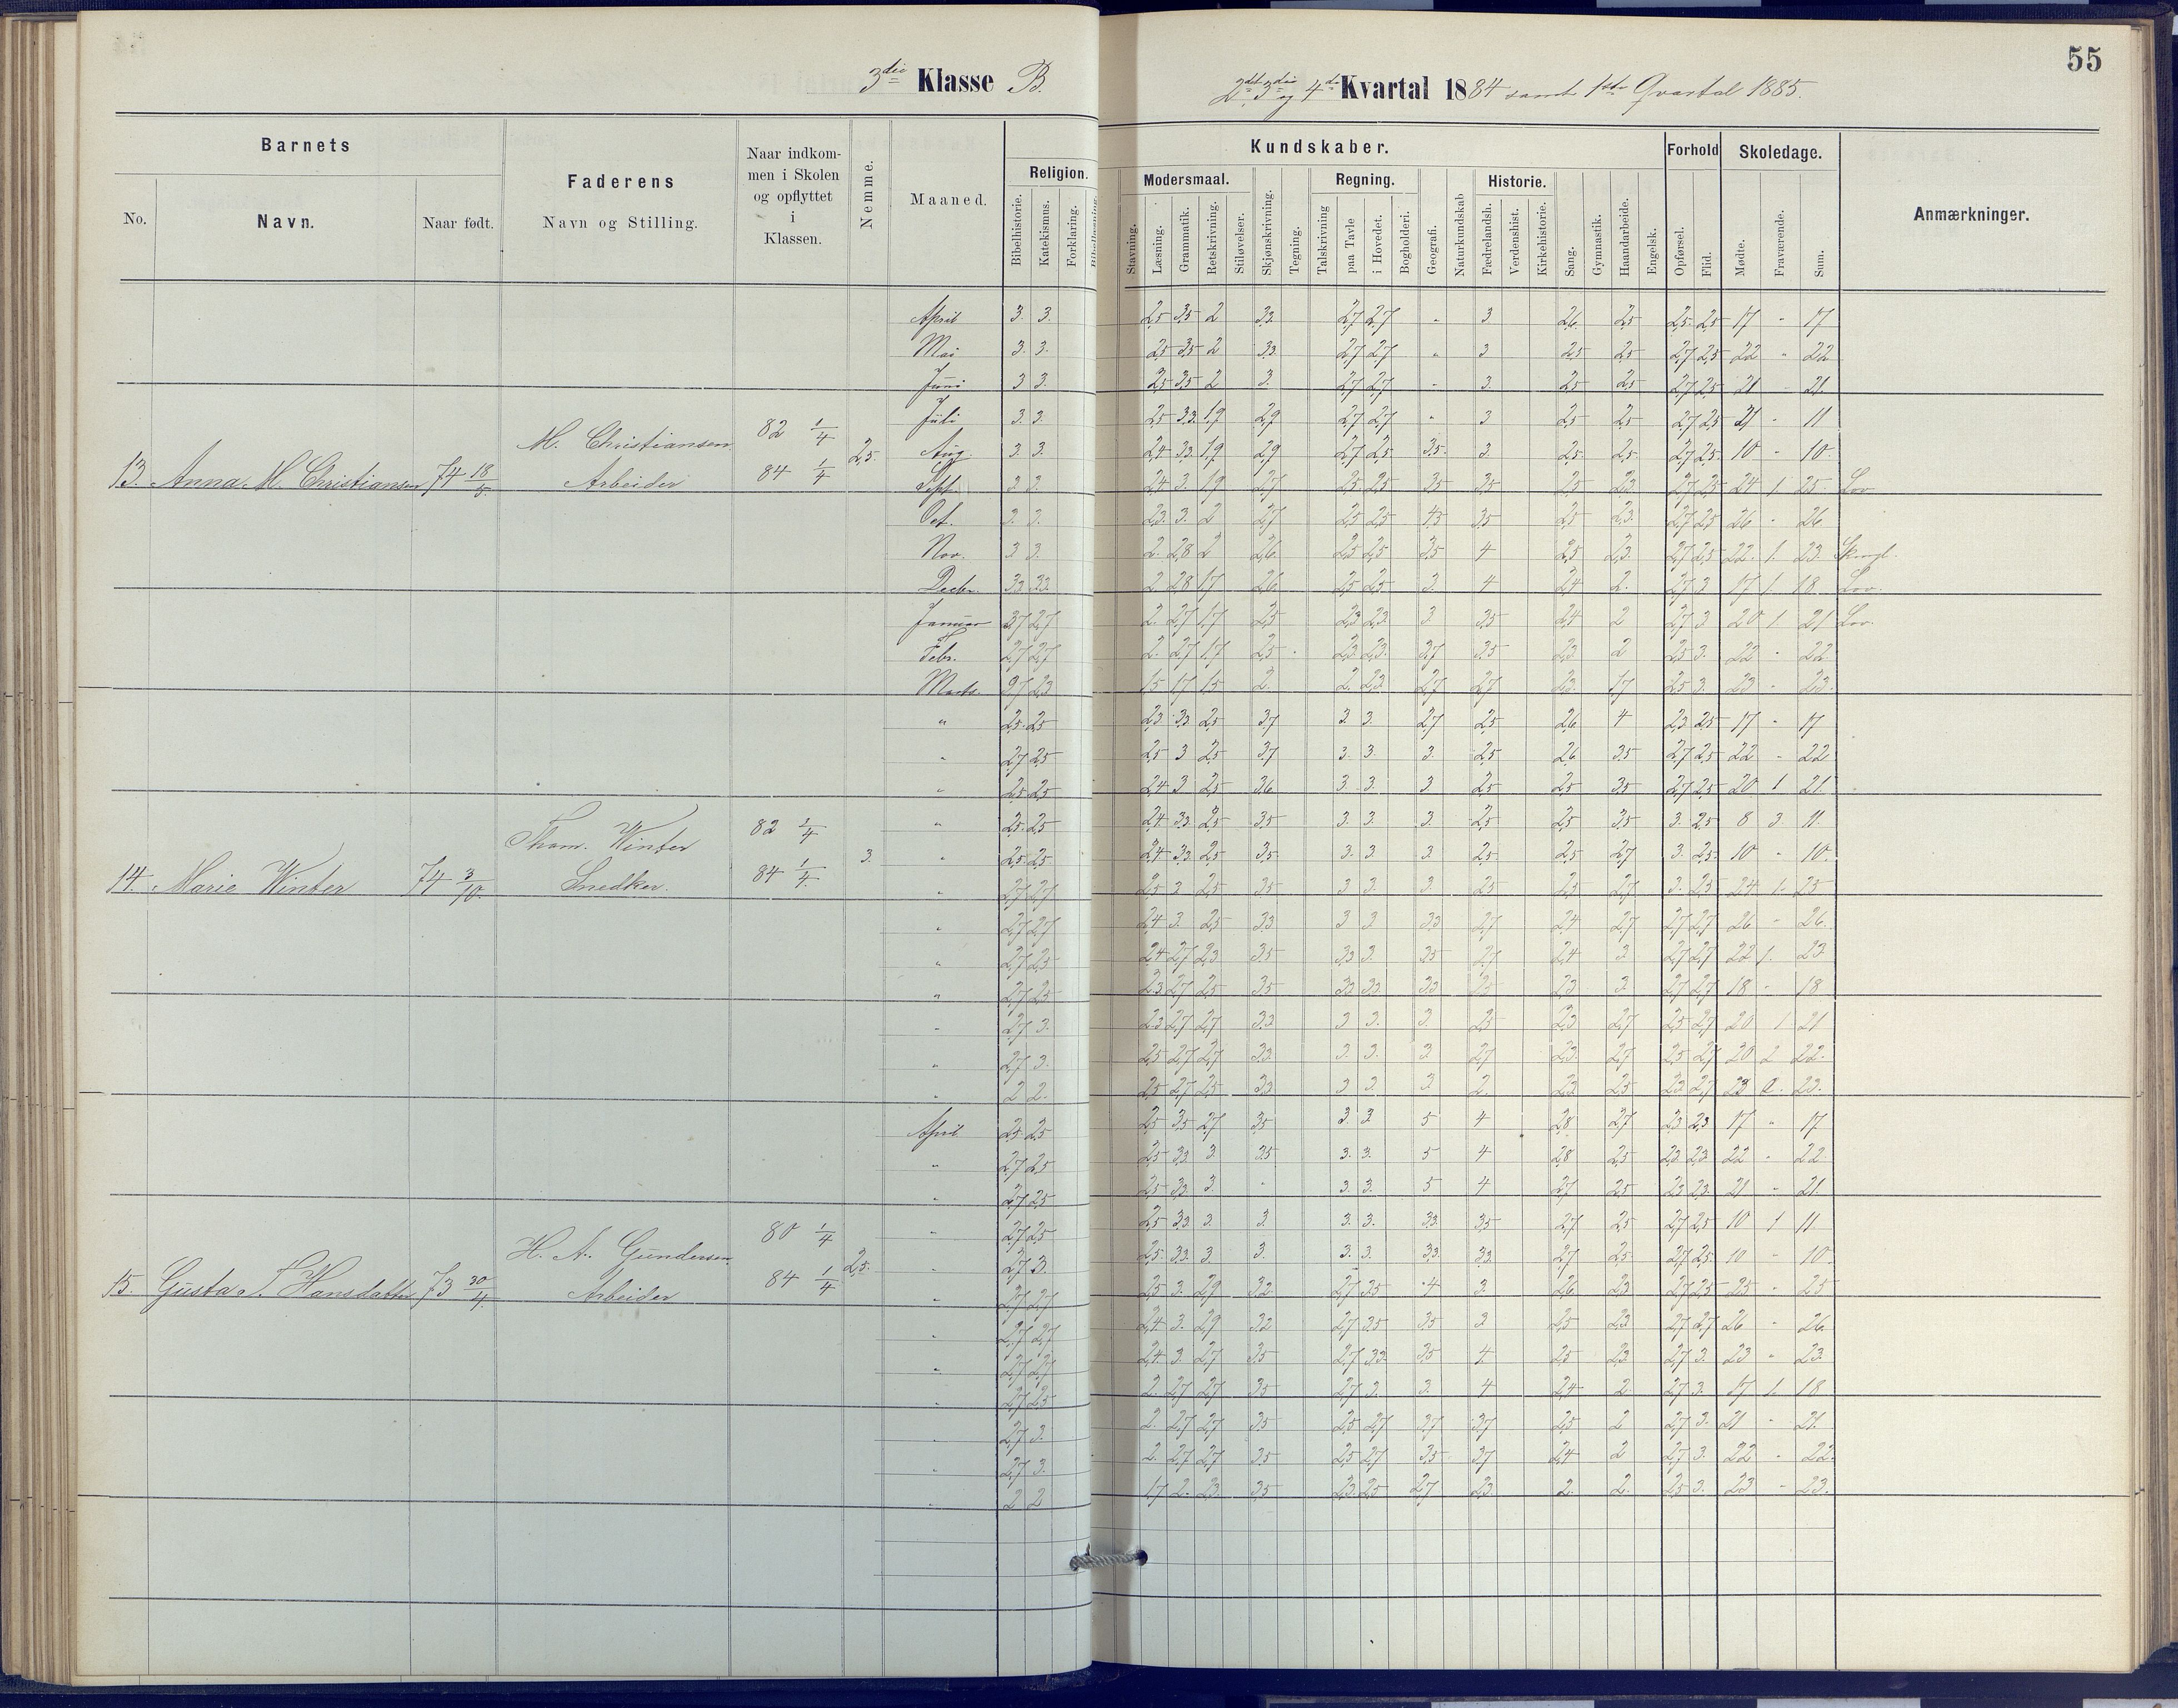 55
3die Klasse B.
2det 3die og 4de Kvartal 1884 samt 1ste Qvartal 1885.
Barnets
Faderens
Naar indkommen i Skolen og opflyttet i Klassen.
Nemme.
Maaned.
Religion.
Kundskaber.
Modersmaal.
Regning.
Historie.
Forhold
Skoledage.
Anmærkninger.
No.
Navn.
Naar født.
Navn og Stilling.
Bibelhistorie.
Katekismus.
Forklaring.
Stavning.
Læsning.
Grammatik.
Retskrivning.
Stiløvelser.
Skjønskrivning.
Tegning.
Talskrivning
paa Tavle
i Hovedet.
Bogholderi.
Geografi.
Naturkundskab
Fædrelandsh.
Verdenshist.
Kirkehistorie.
Sang.
Gymnastik.
Haandarbeide.
Engelsk.
Opførsel.
Flid.
Mødte.
Fraværende.
Sum.
April 3. 3. 2,5 3,5 2 3,3. 2,7 2,7 " 3 2,6. 2,5 2,5. 2,5 17 " 17
Mai 3. 3. 2,5 3,5 2 3,3. 2,7 2,7 " 3 2,5 2,5. 2,7 2,5 22 " 22
Juni 3 3. 2,5 3,5 2 3. 2,7 2,7 " 3. 2,5 2,5 2,7 2,5 21 " 21.
Juli 3. 3. 2,5 3,3. 1,9 2,9 2,7 2,7 " 3 2,5 2,5 2,7 2,5 11
13. Anna M. Christiansen 74 18/5.
M. Christiansen.
Arbeider
82 1/4
84 1/4
2,5.
Aug. 3. 3. 2,4 3,3 1,9 2,9 2,7 2,5 3,5. 3. 2,5. 2,5. 2,7 2,5. 10 " 10.
Sept. 3 3. 2,4 3. 1,9 2,7 2,5 2,5 3,5 3,5 2,5 2,3. 2,7 2,5 24 1 25. Lov.
Oct. 3. 3. 2,3. 3. 2 2,7 2,5 2,5 4,5 3,5 2,5 2,3. 2,7 2,5 26 " 26
Nov. 3 3. 2. 2,8 2 2,6. 2,5 2,5 3,5 4 2,5 2,3. 2,7 2,5 22. 1. 23.
Decbr. 3,3 3,3. 2. 2,8 1,7 2,6 2,5 2,5 3. 4 2,4 2. 2,7 3 17 1. 18. Lov.
Januar 2,7 2,7 2. 2,7 1,7 2,5 2,3 2,3. 3 3,5 2,4 2 2,7 3 20 1. 21 Lov.
Febr. 2,7 2,7 2. 2,7 1,7 2,5 2,3 2,3. 3,7 3,5 2,3. 2 2,5 3. 22 " 22.
Marts. 2,7 2,3 1,5 1,7 1,5 2. 2. 2,3. 2,7 2,7 2,3. 1,7 2,5 3. 23 " 23.
" 2,5. 2,5 2,3 3,3. 2,5 3,7 3. 3. 2,7 2,5 2,6 4 2,3 2,5 17 " 17
" 2,7 2,5 2,5 3 2,5 3,7 3. 3. 3. 2,5 2,6 3,5 2,7 2,5 22 " 22
" 2,5. 2,5 2,4 3 2,5 3,6 3. 3. 3 2,5 2,5 3,5 2,7 2,5 20 1 21.
" 2,5. 2,5 2,4 3,3. 2,5 3,5 3. 3. 3. 2,5 2,5 3,5 3. 2,5 8 3. 11.
14. Marie Winter 74 3/10.
Thom. Winter
Snedker.
82 1/4
84 1/4.
3.
" 2,5. 2,5 2,4 3,3. 2,5 3,5. 3. 3. 3. 2,5. 2,5 2,7 3. 2,5. 10 " 10.
" 2,7 2,7 2,5 3 2,5 3,5 3 3. 3. 2,5 2,5 2,7. 3. 2,5 24. 1. 25
" 2,7 2,7 2,4 3. 2,5 3,3 3 3. 3,3 2,7 2,4 2,7 2,7 2,7 26 " 26.
" 2,7 2,5 2,4 2,7 2,3 3,5 3,3 3. 3,5 2,7 2,4 3 2,7 2,7 22 1. 23
" 2,7 2,5 2,3 2,7 2,5 3,5 3,3 3,3. 3,3 2,5 2,3 3. 2,7 2,7 18 " 18
" 2,7 3. 2,3 2,7 2,7 3,3 3 3. 3. 2,5 2,3 2,7 2,5 2,7 20 1 21
" 2,7 3. 2,5 2,7 2,7 3,3. 3. 3. 3. 2,7 2,3. 2,7 2,5 2,7 20 2 22.
" 2 2. 2,5 2,7 2,5 3,3 3 3. 3. 2. 2,3 2,5 2,3 2,7 23 23.
April 2,5. 2,5 2,5 3,5 2,7 3,5 3. 3 5 4 2,8 2,7 2,3 2,3 17 " 17
" 2,7 2,5 2,5 3,3. 3 3,5 3. 3. 5 4 2,8 2,5 2,3. 2,3. 22 " 22
" 2,7 2,5 2,5 3,3. 3. " 3. 3. 5 4 2,7 2,5 2,3 2,3. 21 " 21.
" 2,7 2,5 2,5 3,3. 3. 3. 3. 3. 3,3. 3,5 2,7 2,5 2,7 2,5 10 1 11
15. Gusta S. Hansdatter 73 30/4.
H. A. Gundersen.
Arbeider
80 1/4
84 1/4
2,5.
" 2,7 3. 2,5. 3,3. 3. 3. 3. 3. 3,3. 3,3. 2,7 2,5. 2,7 2,5. 10 " 10.
" 2,7 2,7 2,5 3. 2,9 3,2. 2,7 3,5 4 3. 2,6 2,3 2,7 2,5 25 " 25
" 2,7 2,7 2,4 3. 2,9 3,2 2,7 3,5 3,5 3 2,5 2,3 2,7 2,7 26 " 26
" 2,7 2,7 2,4. 3. 2,7 3,5 2,7 3,3. 3,5 4 2,5 2,3. 2,7 3. 23 " 23
" 2,7 2,5 2. 2,7 2,7 3,5 2,7 3. 3. 4 2,4 2. 2,7 3. 17 1. 18
" 2,7 3. 2. 2,7 2,7 3,5 2,5 2,7 3,7 3,7 2,5 2 2,7 3. 21 " 21.
" 2,7 3. 2. 2,7 2,7 3,5 2,5 2,7 3,5 3,7 2,4 2 2,7 3. 22 " 22.
" 2 2 1,7 2. 2,3. 3,5 2,3. 2,5 2,7 2,3. 2. 2. 2,5 3. 23 " 23.